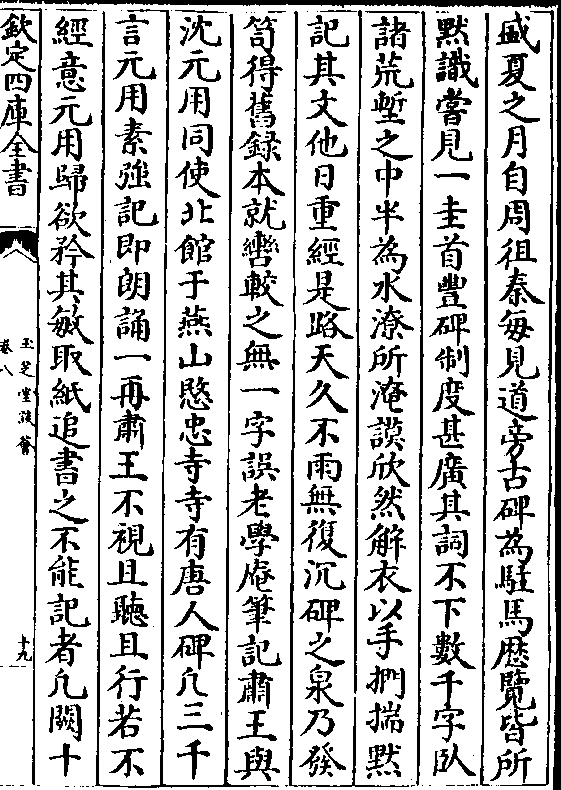 盛夏之月自周徂秦每見道旁古碑為駐馬歷覽皆所
默識嘗見一圭首豐碑制度甚廣其詞不下數千字臥
諸荒塹之中半為水潦所淹謨欣然解衣以手捫揣默
記其文他日重經是路天久不雨無復沉碑之泉乃發
笥得舊録本就轡較之無一字誤老學庵筆記肅王與
沈元用同使北館于燕山愍忠寺寺有唐人碑凡三千
言元用素强記即朗誦一再肅王不視且聽且行若不
經意元用歸欲矜其敏取紙追書之不能記者凡闕十
欽定四庫全書
玉芝堂談薈
卷八
十九